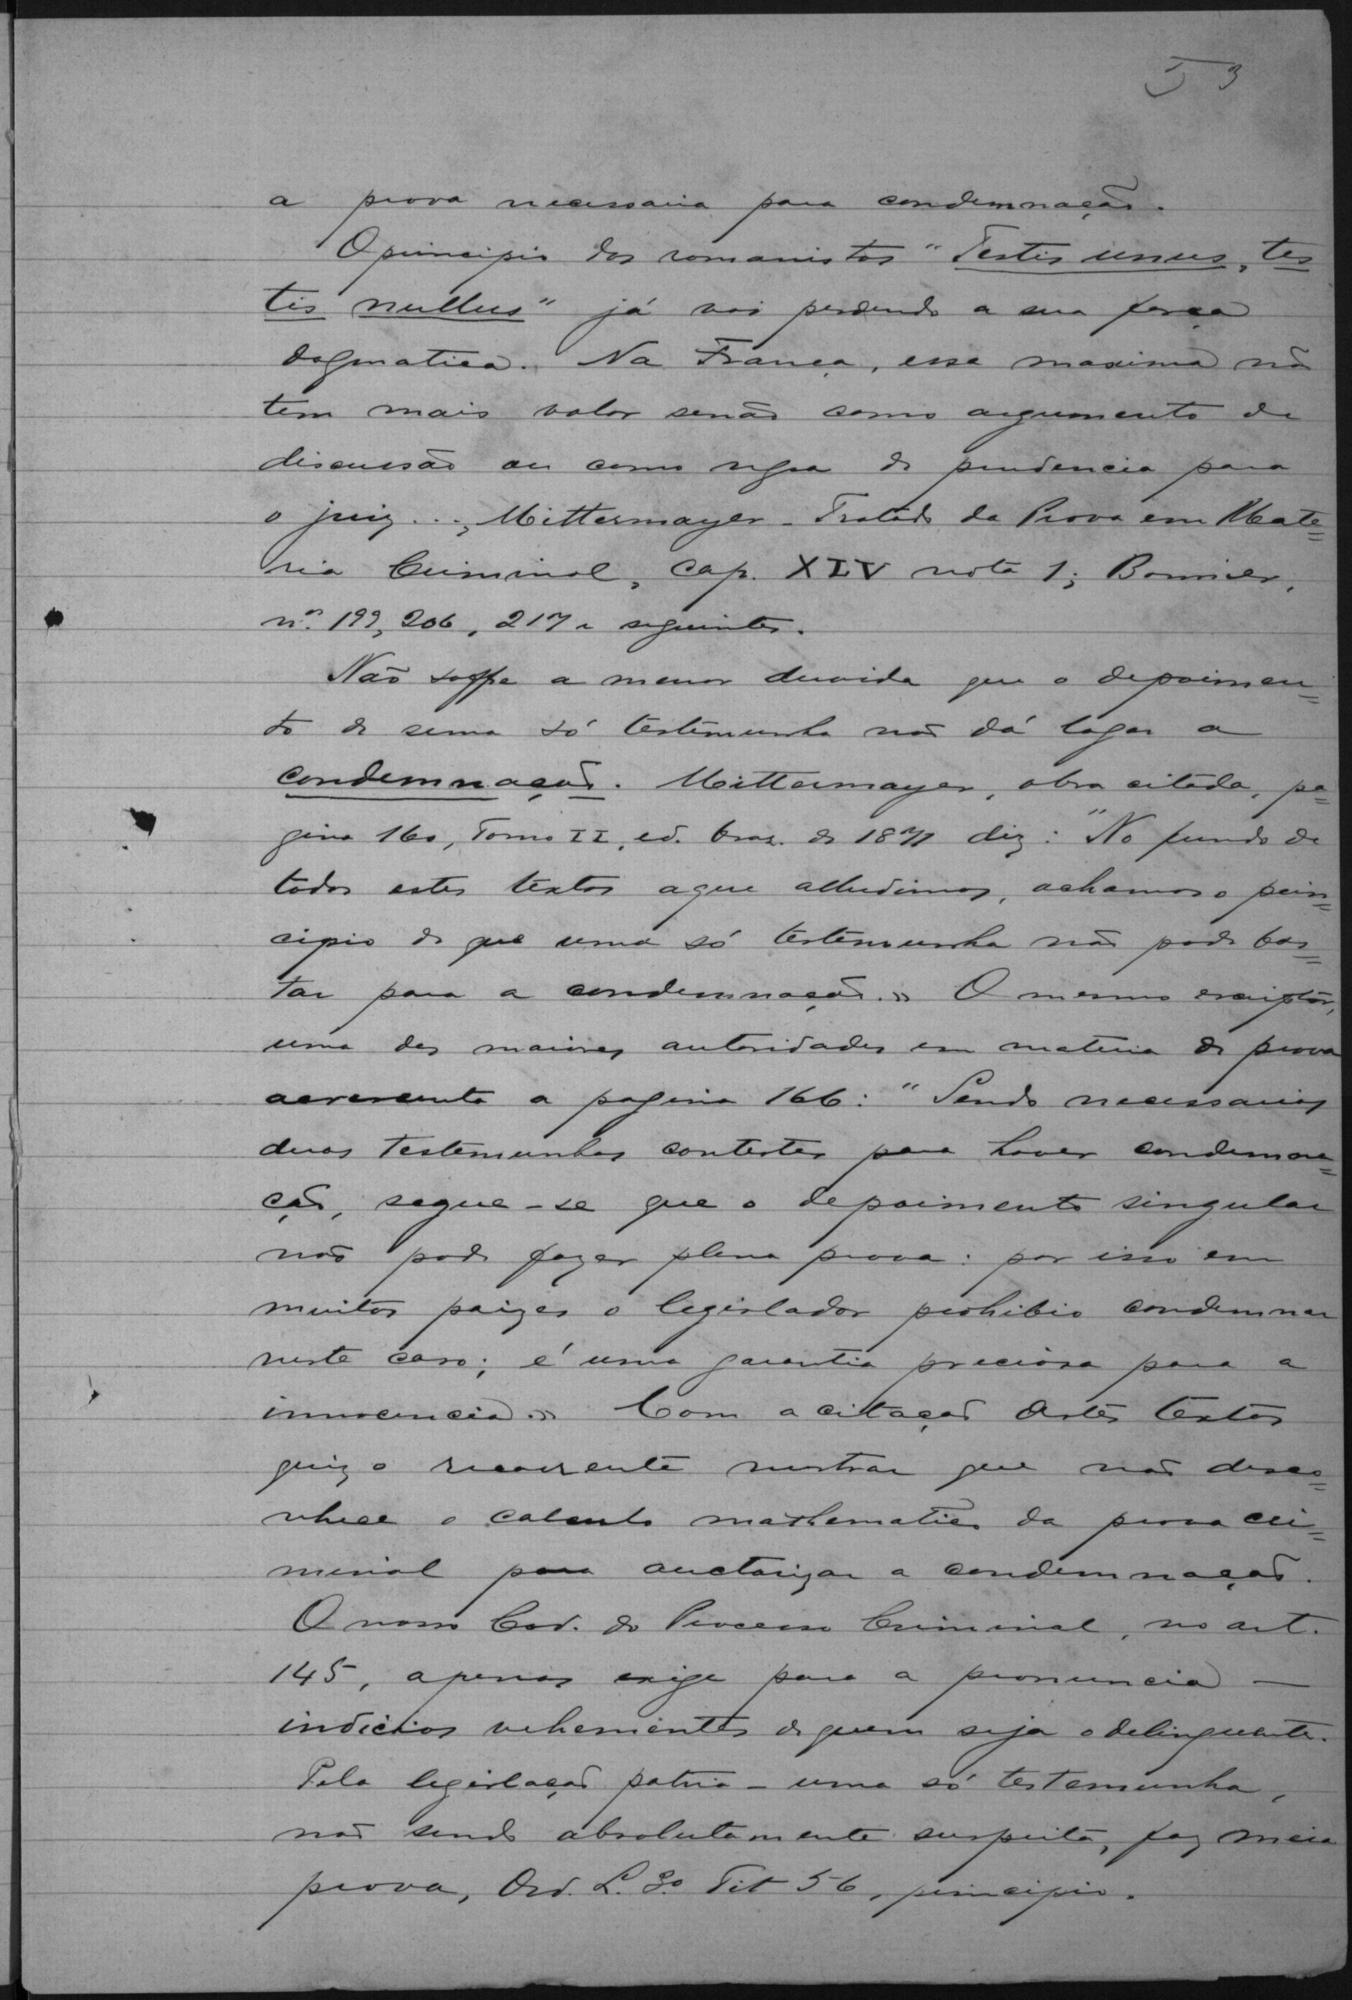 53
a prova necessaria para condemnação.
O principio dos romanistas "Testis unus, tes
tis nullus" já vai perdendo a sua força
dogmatica. Na França, essa maxima não
tem mais valor senão como argumento de
discussão ou como regra de prudencia para
o juiz..., Mittermayer - Tratado da Prova em Mate=
ria Criminal, Cap. XLV nota 1; Bonnier,
nº. 199, 206, 217 e seguintes.
Não soffre a menor duvida que o depoimen=
to de uma só testemunha não dá logar a
condemnação. Mittermayer, obra citada, pa=
gina 160, Tomo II, ed. braz. de 1871 diz: "No fundo de
todos estes textos a que alludimos, achamos o prin=
cipio de que uma só testemunha não pode bas=
tar para a condemnação." O mesmo escriptor,
uma das maiores autoridades em materia de prova
accrescenta a pagina 166: "Sendo necessarias
duas testemunhas contestes para haver condemna=
ção, segue-se que o depoimento singular
não pode fazer plena prova: por isso em
muitos paizes o legislador prohibio condemnar
neste caso; é uma garantia preciosa para a
innocencia." Com a citação destes textos
quiz o recorrente mostrar que não desco=
nhece o calculo mathematico da prova cri=
minal para auctorizar a condemnação.
O nosso Cod. do Processo Criminal, no art.
145, apenas exige para a pronuncia —
indicios vehementes de quem seja o delinquente.
Pela legislação patria - uma só testemunha,
não sendo absolutamente suspeita, faz meia
prova, Ord. L. 3º Tit 56, principio.